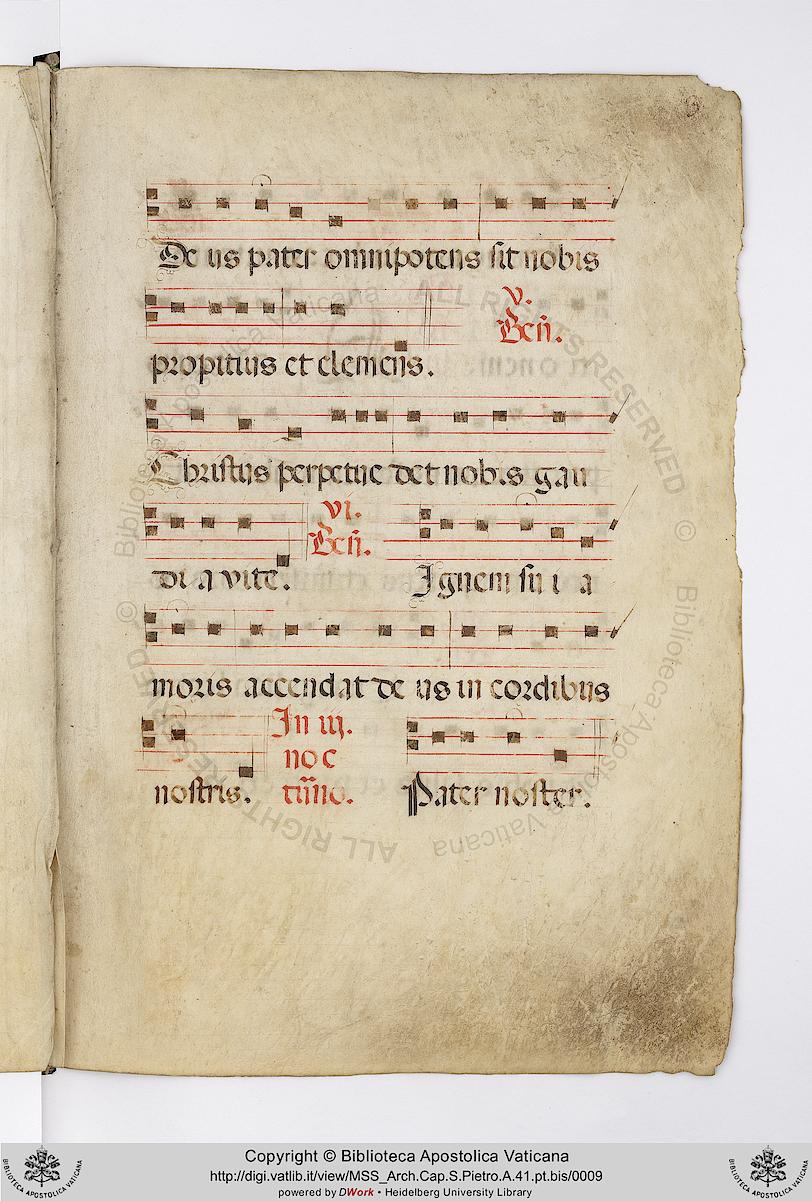 De us pater omnipotens sit nobis
v.
Beñ.
propitius et clemens.
Christus perpetue det nobis gau
vi.
Beñ.
di a vite. Ignem su i a
moris accendat de us in cordibus
In iij.
noc
nostris. turno. Pater noster.
ALL RIGHTS RESERVED
© Biblioteca Apostolica Vaticana
ALL RIGHTS RESERVED
© Biblioteca Apostolica Vaticana
BIBLIOTECA APOSTOLICA VATICANA
Copyright © Biblioteca Apostolica Vaticana
http://digi.vatlib.it/view/MSS_Arch.Cap.S.Pietro.A.41.pt.bis/0009
powered by DWork • Heidelberg University Library
BIBLIOTECA APOSTOLICA VATICANA